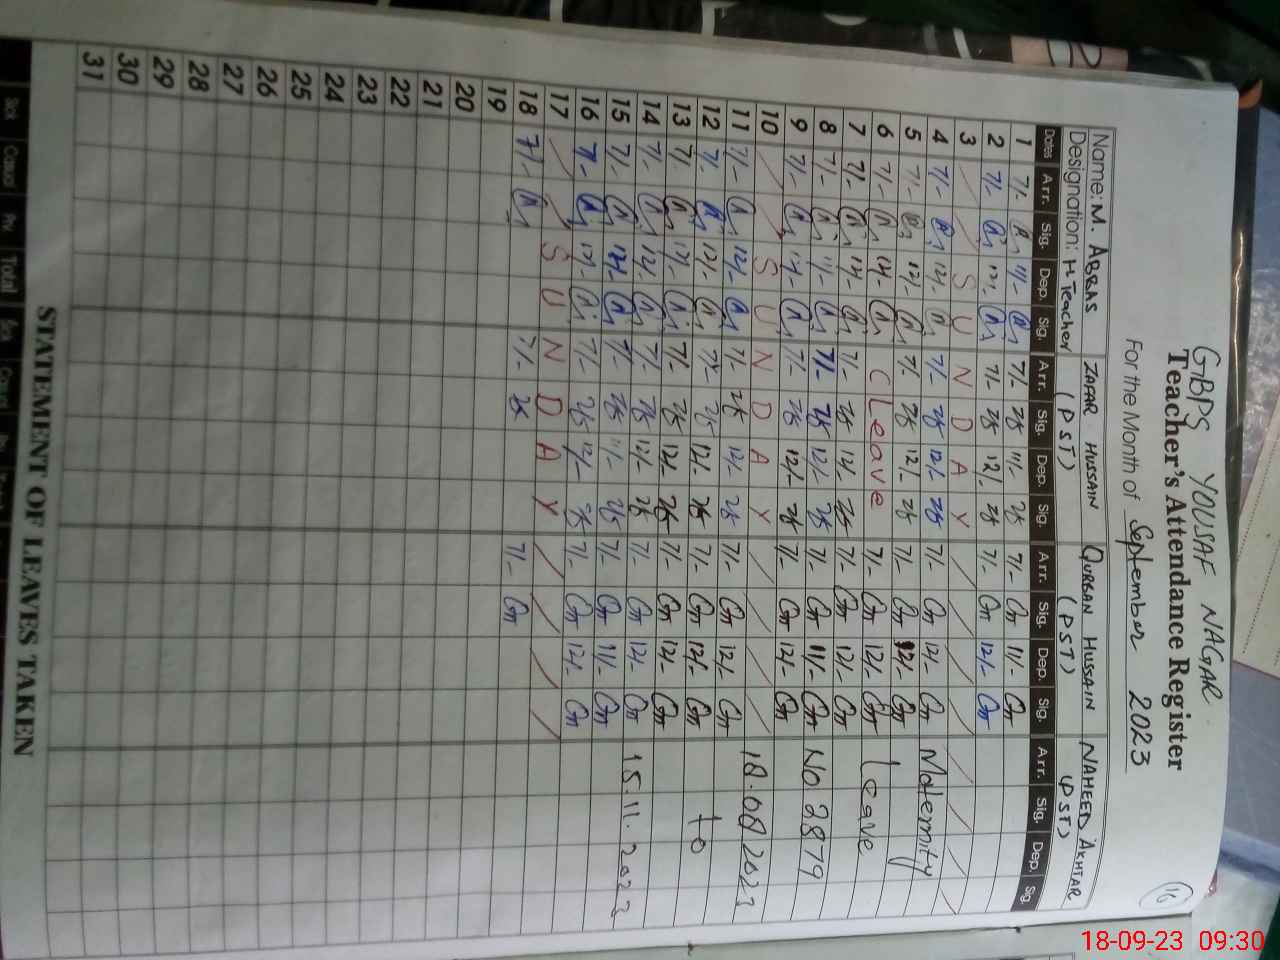 16
GBPS YOUSAF NAGAR
Teacher's Attendance Register
For the Month of September 2023
Name: M. ABBAS ZAFAR HUSSAIN QURBAN HUSSAIN NAHEED AKHTAR
Designation: H Teacher (PST) (PST) (PST)
Dates Arr. Sig. Dep. Sig. Arr. Sig. Dep. Sig. Arr. Sig. Dep. Sig. Arr. Sig. Dep. Sig.
1 7/- 11/- 7/- 11/- 7/- 11/-
2 7/- 12/- 7/- 12/- 7/- 12/-
3 S U N D A Y
4 7/- 12/- 7/- 12/- 7/- 12/- Maternity
5 7/- 12/- 7/- 12/- 7/- 12/-
6 7/- 12/- C Leave 7/- 12/- Leave
7 7/- 12/- 7/- 12/- 7/- 12/-
8 7/- 11/- 7/- 12/- 7/- 11/- No 3879
9 7/- 12/- 7/- 12/- 7/- 12/-
10 S U N D A Y 2023
11 7/- 12/- 7/- 12/- 7/- 12/-
12 7/- 12/- 7/- 12/- 7/- 12/- to
13 7/- 12/- 7/- 12/- 7/- 12/-
14 7/- 12/- 7/- 12/- 7/- 12/- 15.11.2023
15 7/- 12/- 7/- 11/- 7/- 11/-
16 7/- 12/- 7/- 12/- 7/- 12/-
17 S U N D A Y
18 7/- 7/- 7/-
19
20
21
22
23
24
25
26
27
28
29
30
31
STATEMENT OF LEAVES TAKEN
Sick Casual Priv. Total Sick Casual
18-09-23 09:30